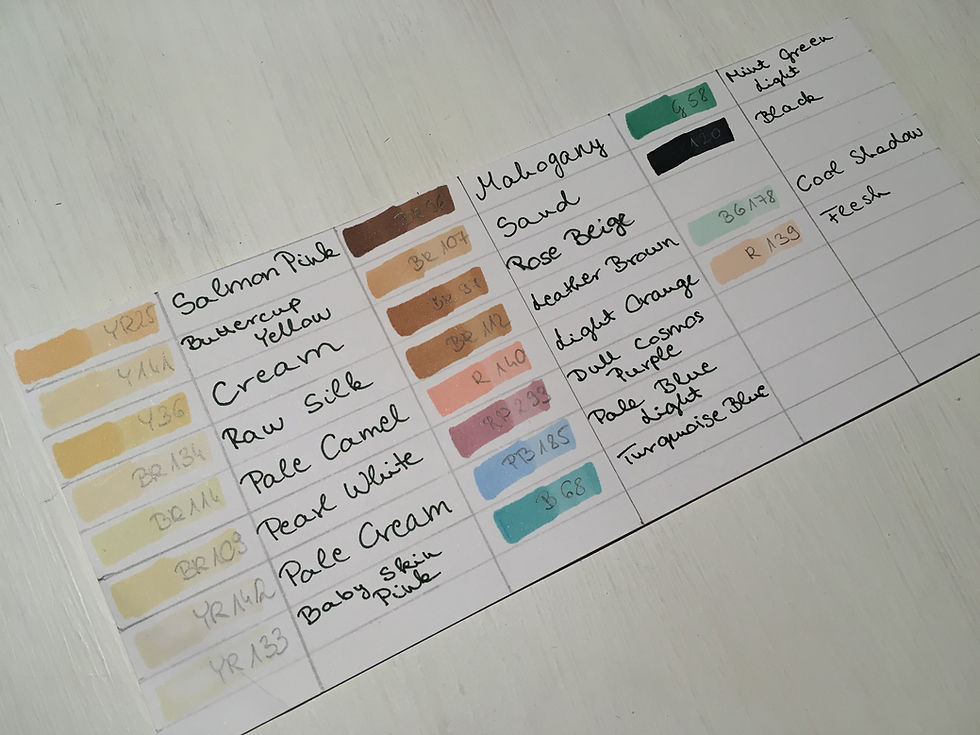 YR25 Salmon Pink
Y141 Buttercup
Yellow
Y36 Cream
BR134 Raw Silk
BR114 Pale Camel
BR109 Pearl White
YR142 Pale Cream
YR133 Baby Skin
Pink
Mahogany
BR107 Sand
Rose Beige
BR112 Leather Brown
R140 Light Orange
RP293 Dull Cosmos
Purple
PB185 Pale Blue
Light
B68 Turquoise Blue
G58 Mint Green
Light
120 Black
BG178 Cool Shadow
R139 Flesh